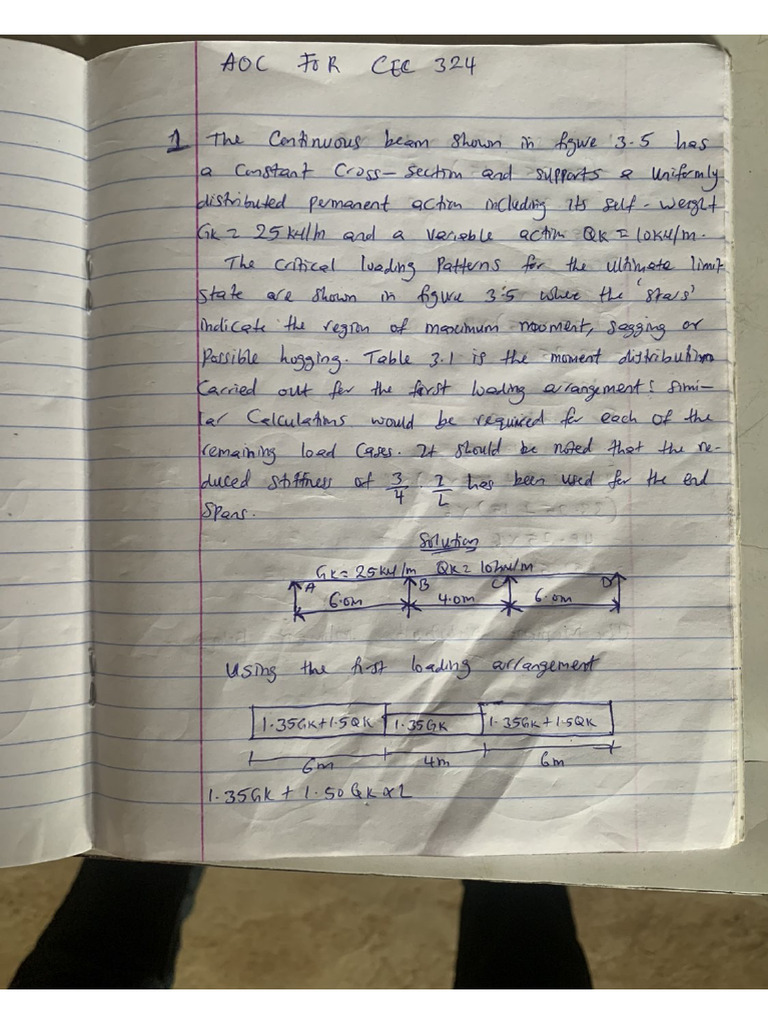 AOC FOR CEC 324
1 The Continuous beam shown in figure 3.5 has
a Constant Cross-section and supports a uniformly
distributed permanent action including its self-weight
GK = 25kN/m and a variable action QK = 10KN/m.
The critical loading Patterns for the ultimate limit
state are shown in figure 3.5 where the 'stars'
indicate the region of maximum moment, sagging or
Possible hogging. Table 3.1 is the moment distribution
Carried out for the first loading arrangement: Simi-
lar Calculations would be required for each of the
remaining load Cases. It should be noted that the re-
duced stiffness of 3/4 I/L has been used for the end
Spans.
Solution
GK = 25kN/m QK = 10kN/m
A B C D
6.0m 4.0m 6.0m
Using the first loading arrangement
1.35GK+1.5QK 1.35GK 1.35GK+1.5QK
6m 4m 6m
1.35GK + 1.50QK × L